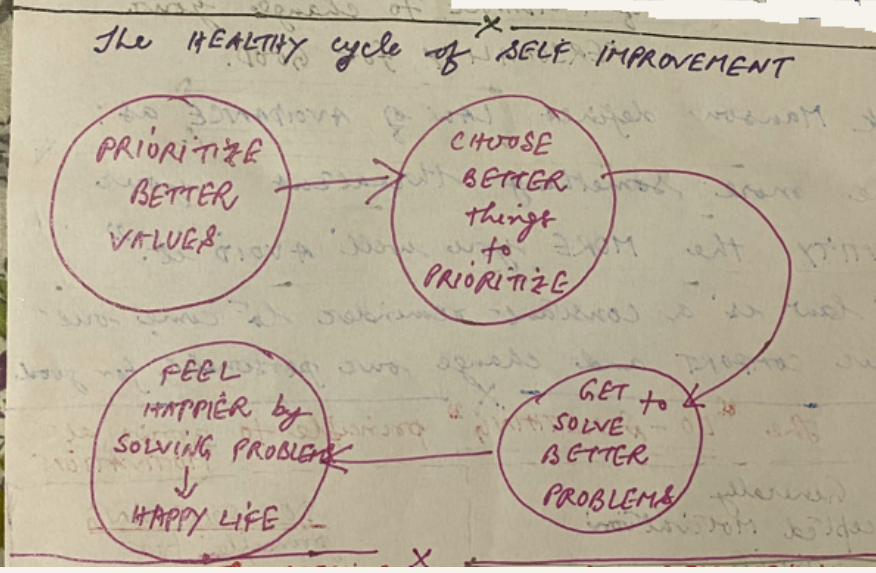 The HEALTHY cycle of SELF IMPROVEMENT
PRIORITIZE
BETTER
VALUES
CHOOSE
BETTER
things
to
PRIORITIZE
GET to
SOLVE
BETTER
PROBLEMS
FEEL
HAPPIER by
SOLVING PROBLEMS
HAPPY LIFE